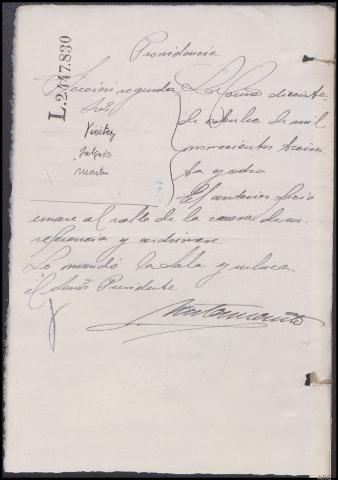 L.2447.830
Providencia
Sección segunda
Sres
Vieitez
Salgado
Martin
La Coruña diecisiete
de octubre de mil
novecientos trein
ta y ocho
El anterior oficio
unase al rollo de la causa de su
referencia y archivese.
Lo mandó la Sala y rubrica
el Señor Presidente